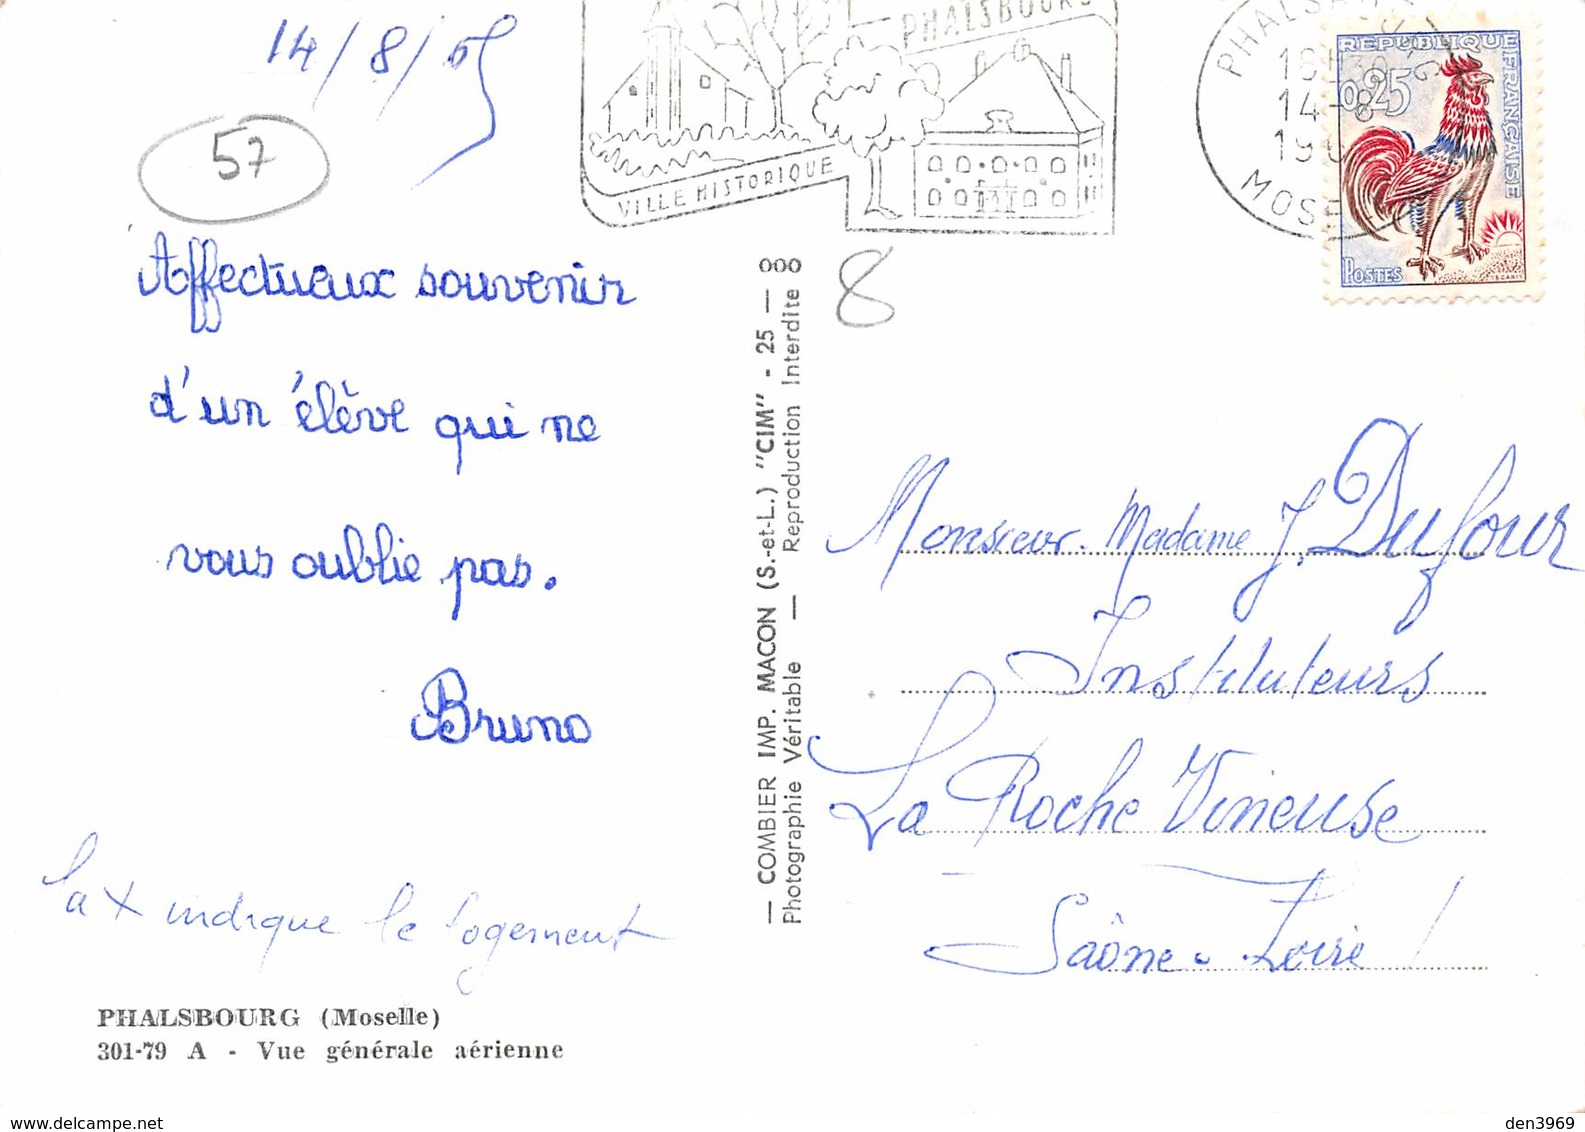 14/8/65
57
PHALSBOURG
VILLE HISTORIQUE
PHALSBOURG
18H30
14-8
19
MOSELLE
REPUBLIQUE FRANÇAISE
0,25
POSTES
8
Affectueux souvenir
d'un élève qui ne
vous oublie pas.
Bruno
la x indique le logement
PHALSBOURG (Moselle)
301-79 A - Vue générale aérienne
— COMBIER IMP. MACON (S.-et-L.) "CIM" - 25 — 000
Photographie Véritable — Reproduction Interdite
Monsieur. Madame J. Dufour
Instituteurs
La Roche Vineuse
Saône-Loire
den3969